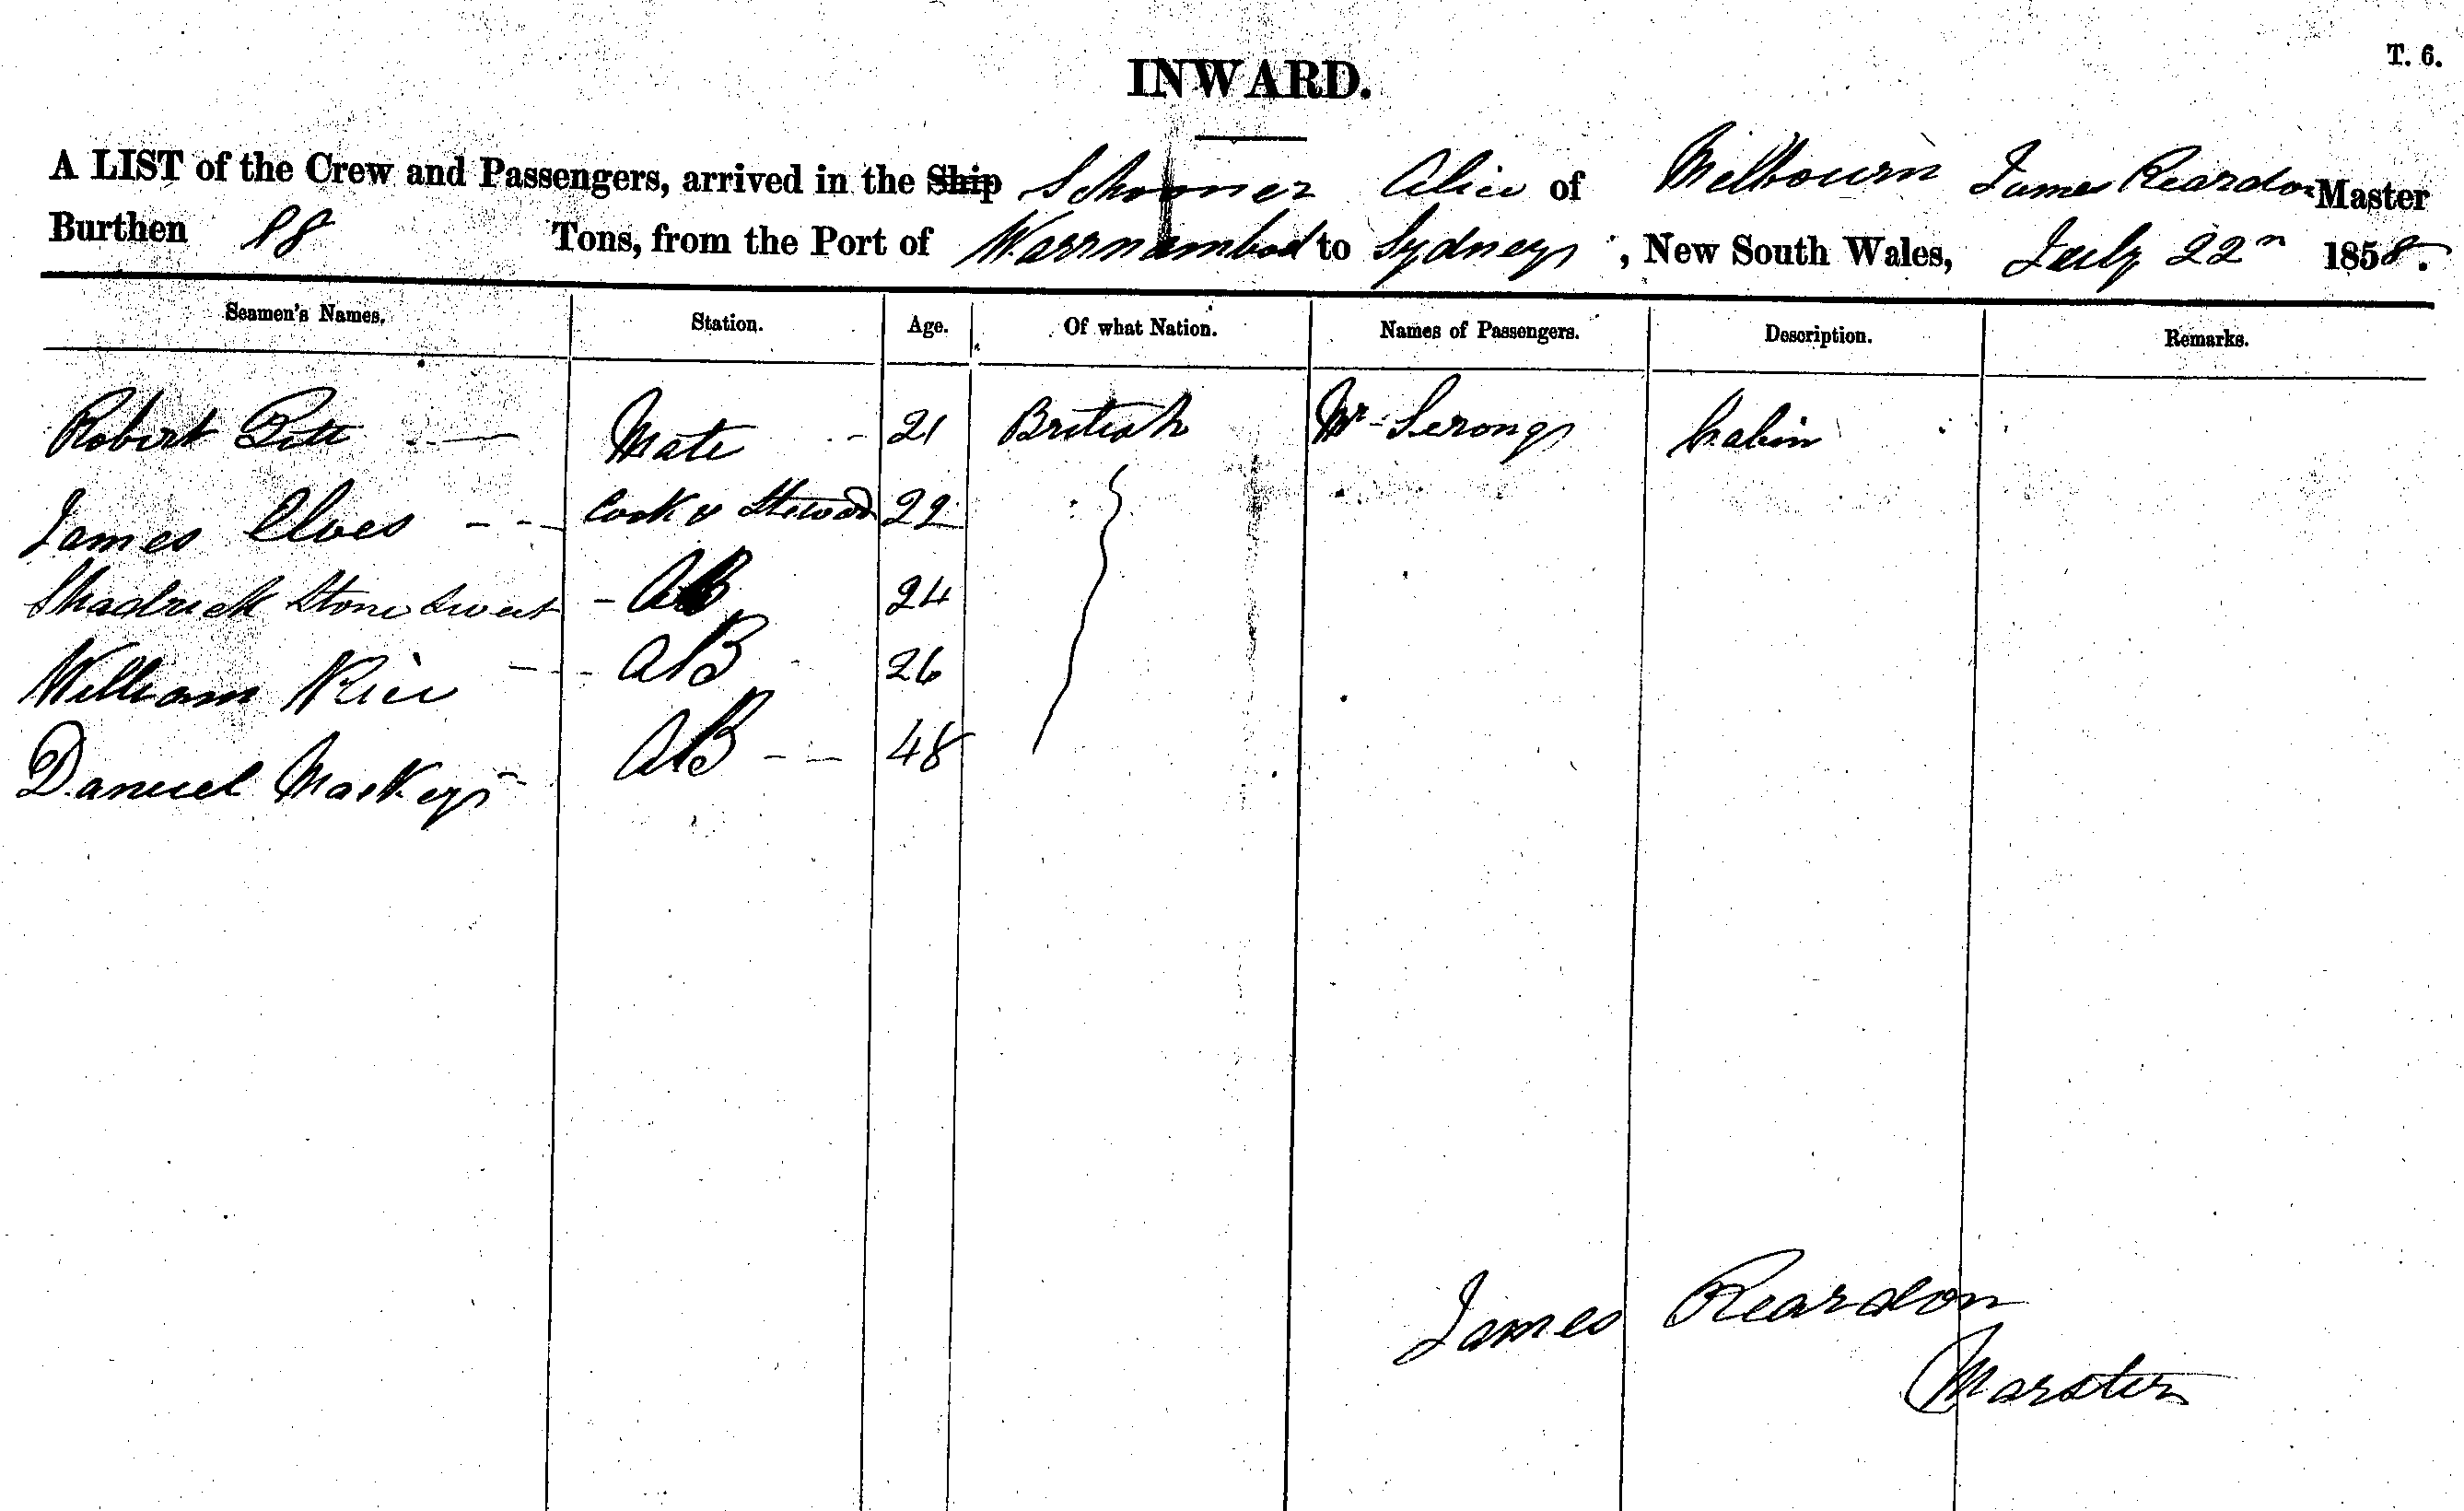 T. 6.
INWARD.
A LIST of the Crew and Passengers, arrived in the Ship Schooner Alice of Melbourn James Reardon Master
Burthen 98 Tons, from the Port of Warrnambool to Sydney, New South Wales, July 22n 1858.
Seamen's Names. Station. Age. Of what Nation. Names of Passengers. Description. Remarks.
Robert Pitt Mate 21 British Mr Serong Cabin
James Elves Cook & Steward 22
Shadrick Stone Sweet AB 24
William Rice AB 26
Danuel Mackey AB 48
James Reardon
Marster